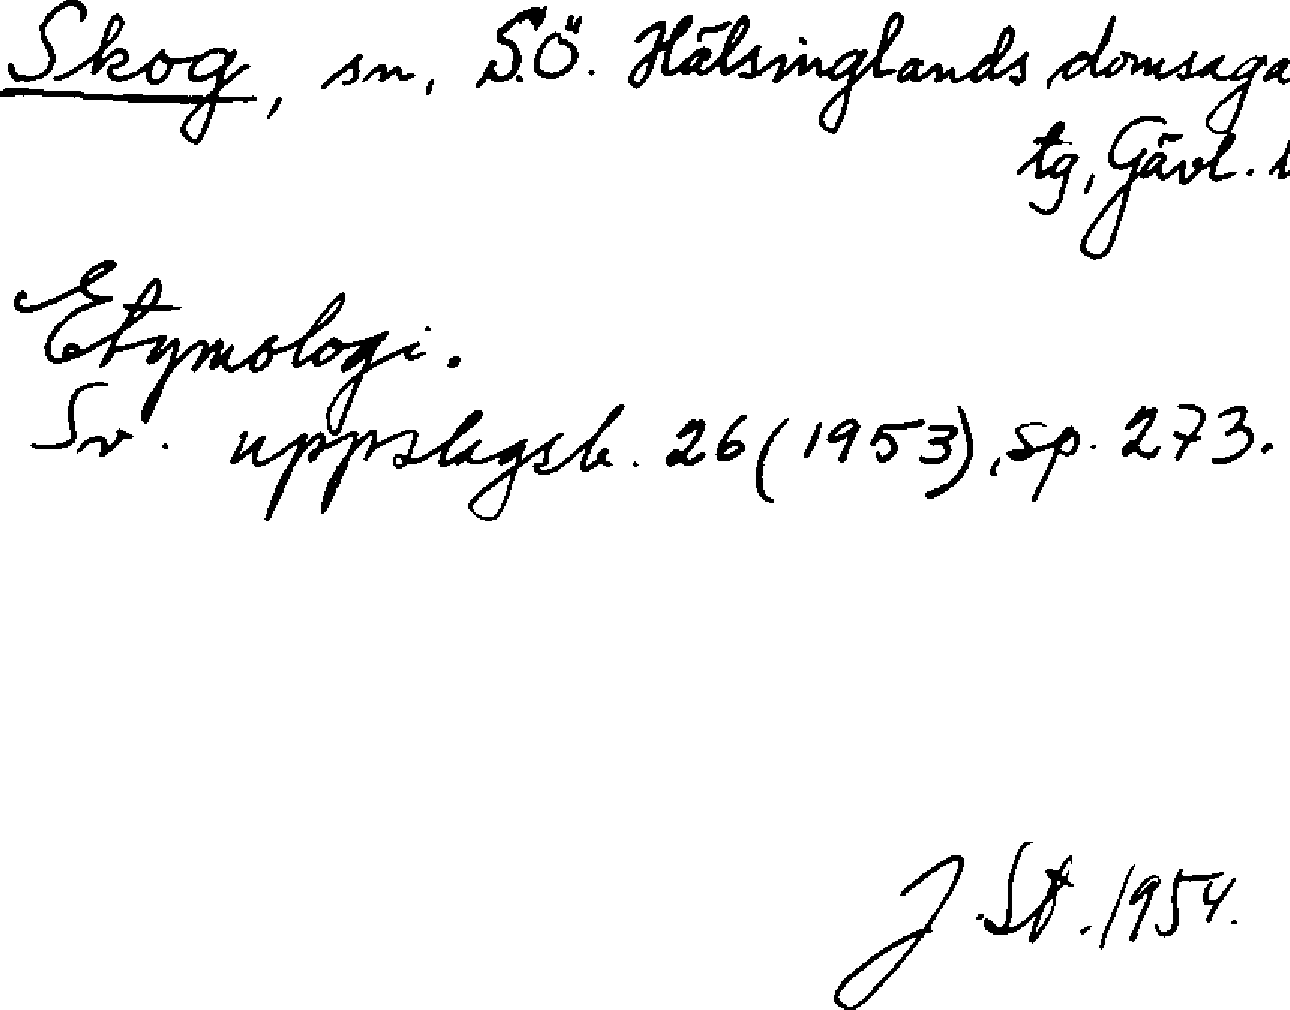 Skog, sn, S.Ö. Hälsinglands domsaga
tg, Gävl. l
Etymologi.
Sv. uppslagsb. 26 (1953), sp. 273.
J. St. 1954.